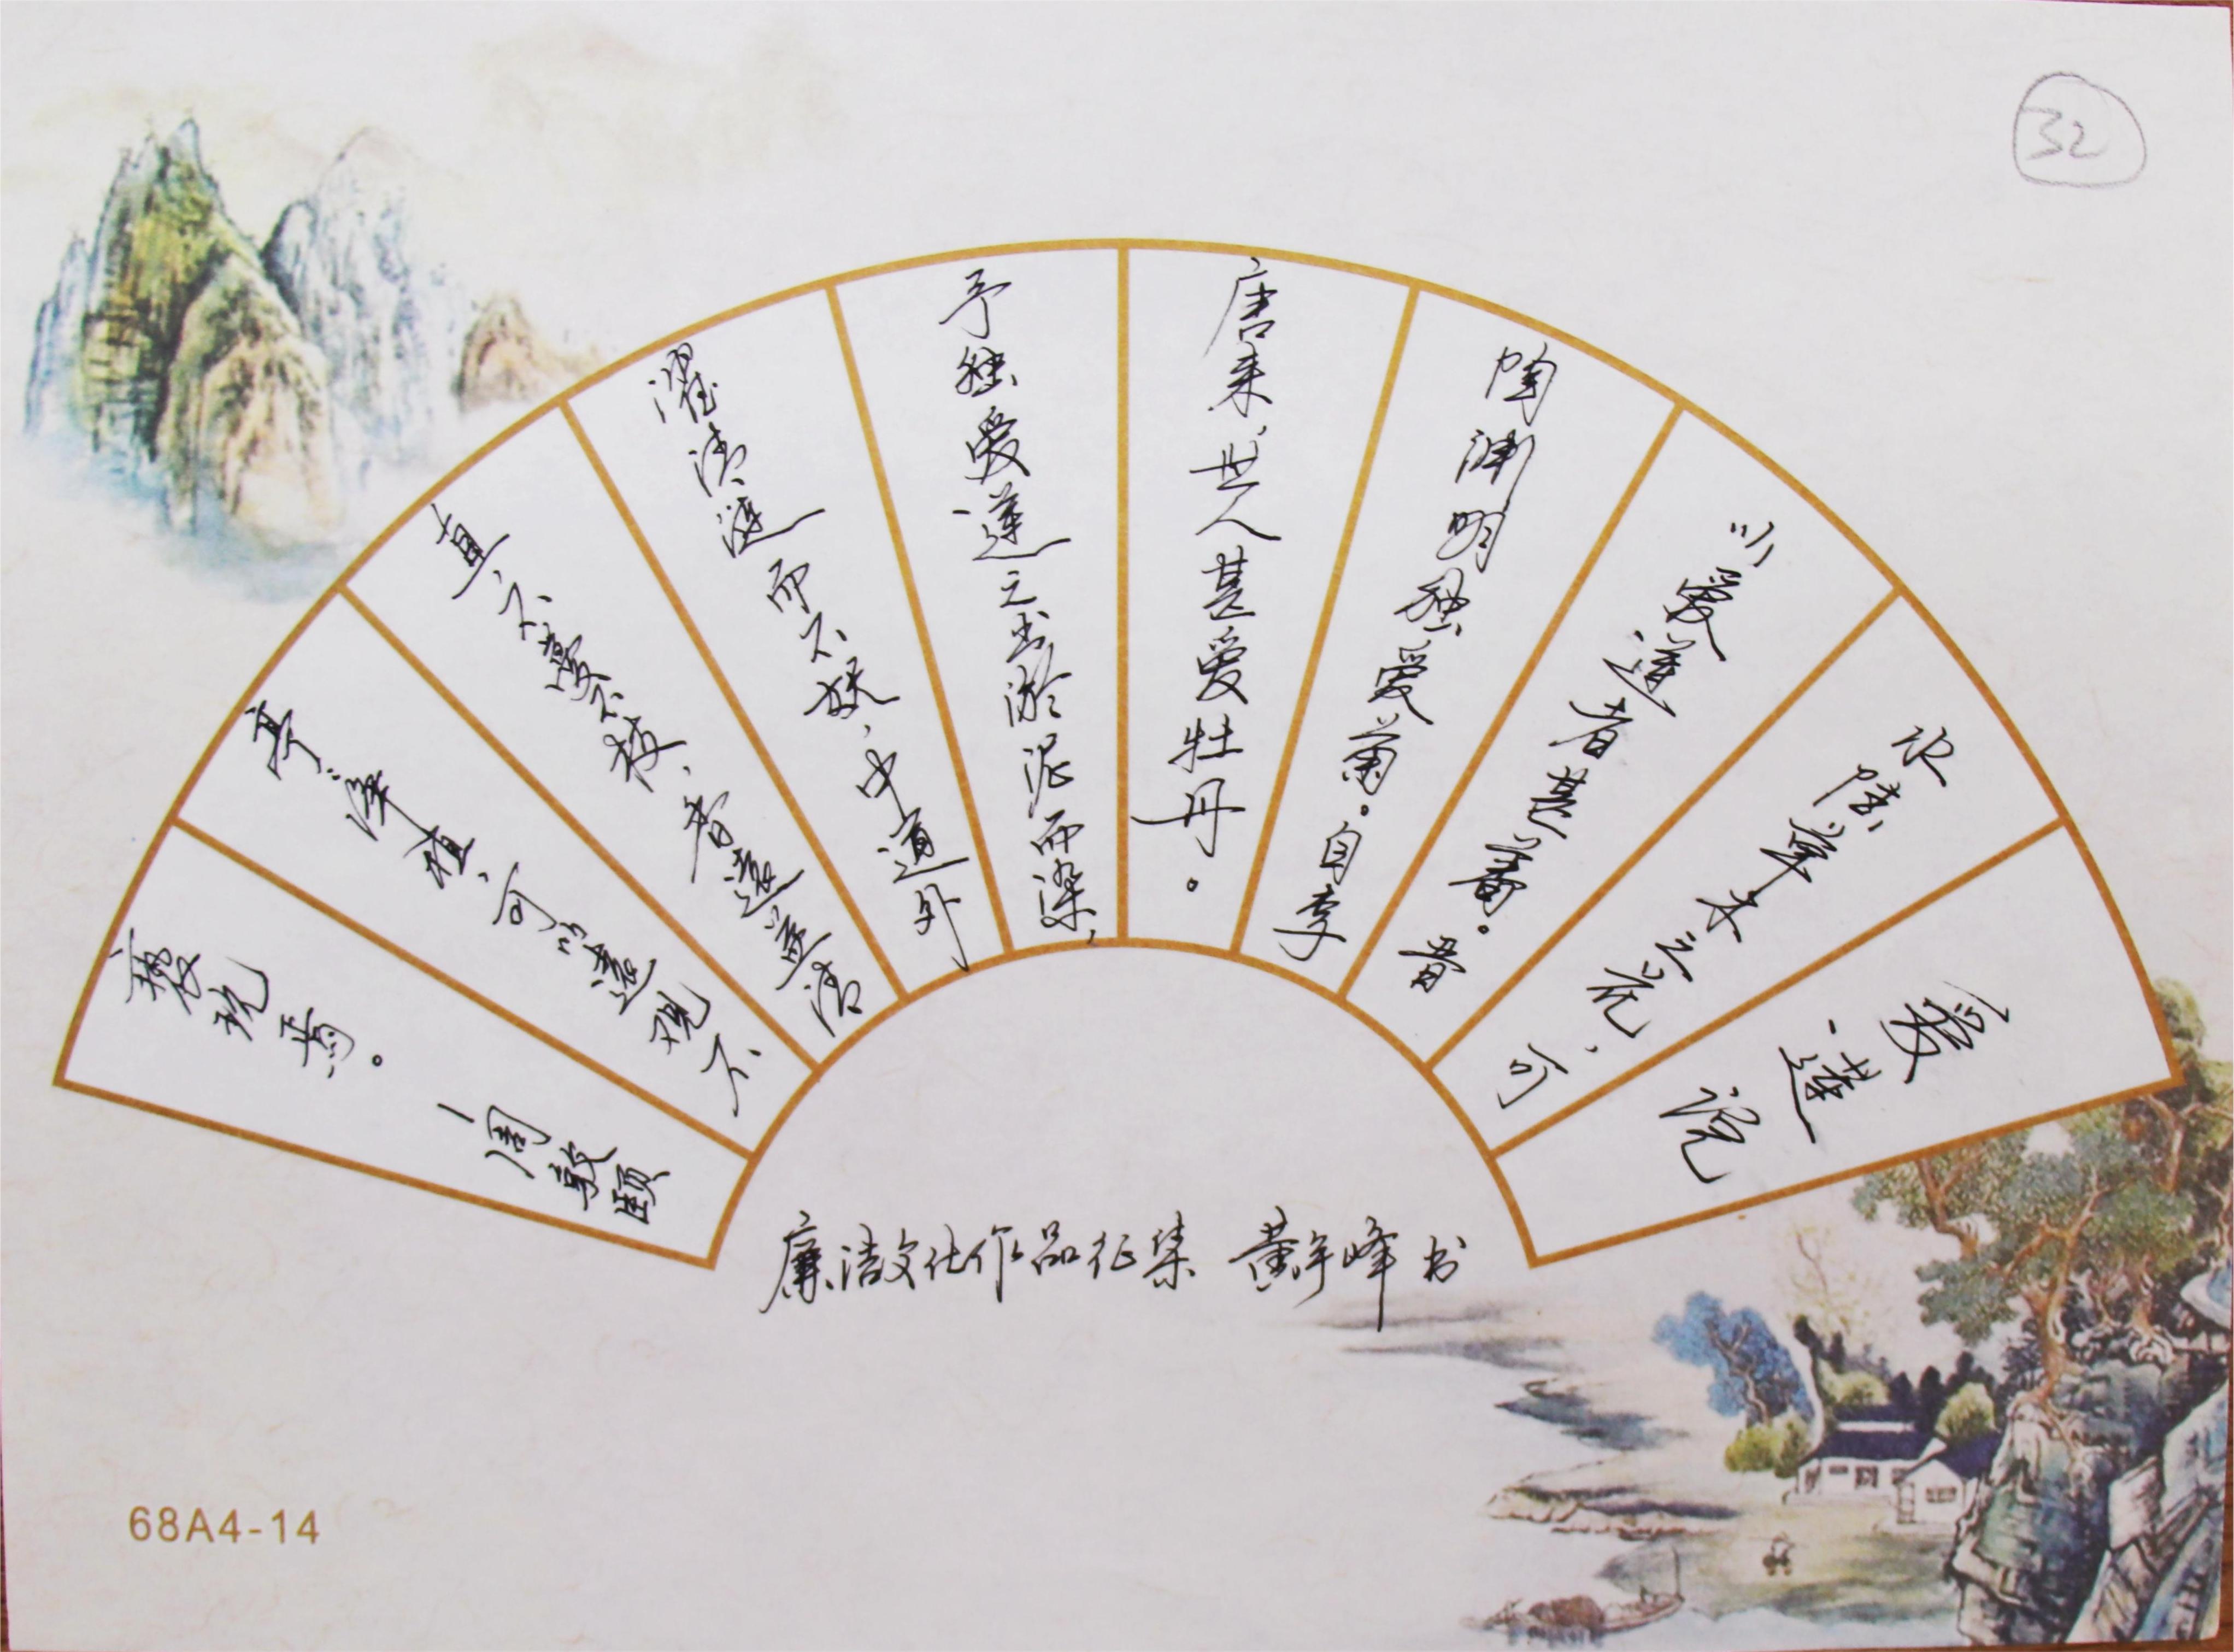 32
爱莲说
水陆草木之花,可
以爱莲者甚蕃。晋
陶渊明独爱菊。自李
唐来,世人甚爱牡丹。
予独爱莲之出淤泥而染,
濯清涟而不妖,中通外
直,不蔓不枝,香远益清
亭亭净植,可以远观不
亵玩焉。 —周敦颐
廉洁文化作品征集 黄年峰书
68A4-14